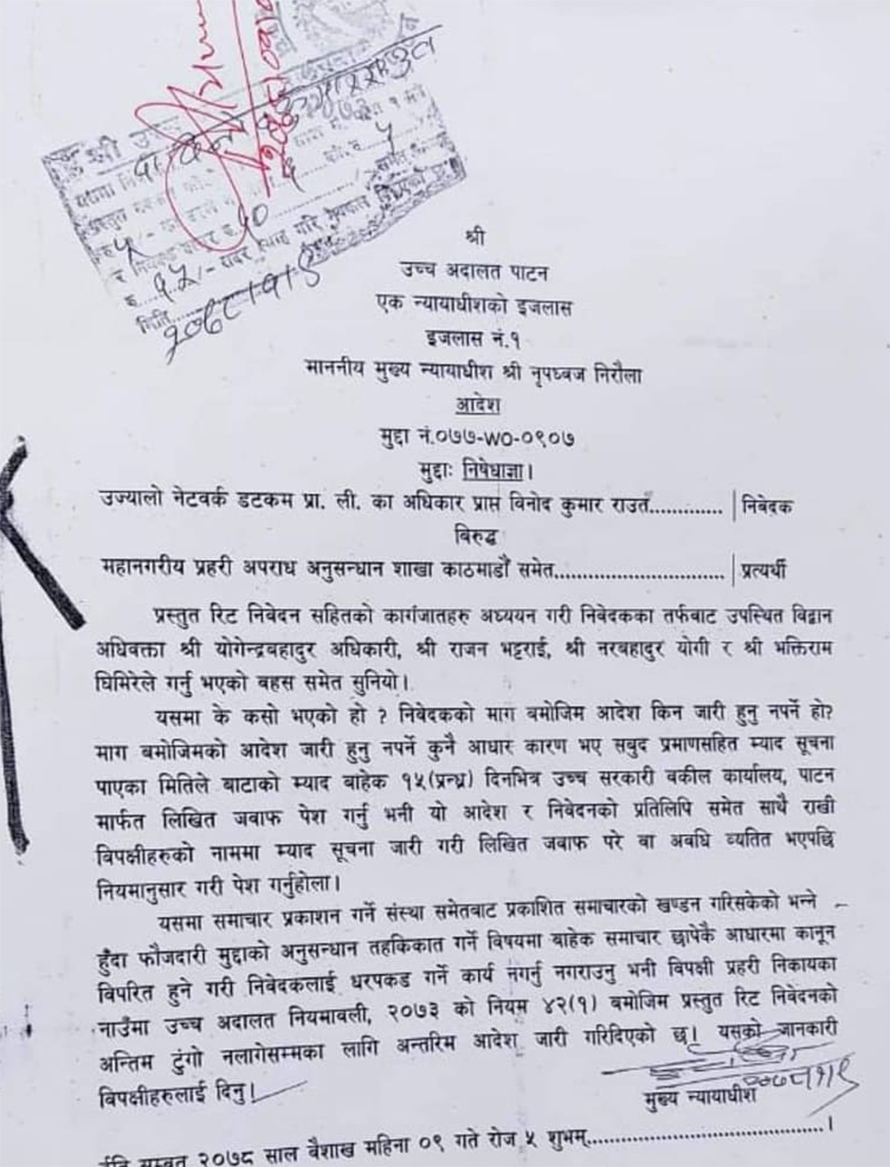 श्री
उच्च अदालत पाटन
एक न्यायाधीशको इजलास
इजलास नं.१
माननीय मुख्य न्यायाधीश श्री नृपध्वज निरौला
आदेश
मुद्दा नं.०७७-WO-०९०७
मुद्दाः निषेधाज्ञा।
उज्यालो नेटवर्क डटकम प्रा. ली. का अधिकार प्राप्त विनोद कुमार राउत............. | निवेदक
विरुद्ध
महानगरीय प्रहरी अपराध अनुसन्धान शाखा काठमाडौं समेत............................. | प्रत्यर्थी
प्रस्तुत रिट निवेदन सहितको कागजातहरु अध्ययन गरी निवेदकका तर्फबाट उपस्थित विद्वान
अधिवक्ता श्री योगेन्द्रबहादुर अधिकारी, श्री राजन भट्टराई, श्री नरबहादुर योगी र श्री भक्तिराम
घिमिरेले गर्नु भएको बहस समेत सुनियो।
यसमा के कसो भएको हो ? निवेदकको माग बमोजिम आदेश किन जारी हुनु नपर्ने हो?
माग बमोजिमको आदेश जारी हुनु नपर्ने कुनै आधार कारण भए सबुद प्रमाणसहित म्याद सूचना
पाएका मितिले बाटाको म्याद बाहेक १५(पन्ध्र) दिनभित्र उच्च सरकारी वकील कार्यालय, पाटन
मार्फत लिखित जवाफ पेश गर्नु भनी यो आदेश र निवेदनको प्रतिलिपि समेत साथै राखी
विपक्षीहरुको नाममा म्याद सूचना जारी गरी लिखित जवाफ परे वा अवधि व्यतित भएपछि
नियमानुसार गरी पेश गर्नुहोला।
यसमा समाचार प्रकाशन गर्ने संस्था समेतबाट प्रकाशित समाचारको खण्डन गरिसकेको भन्ने
हुँदा फौजदारी मुद्दाको अनुसन्धान तहकिकात गर्ने विषयमा बाहेक समाचार छापेकै आधारमा कानून
विपरित हुने गरी निवेदकलाई धरपकड गर्ने कार्य नगर्नु नगराउनु भनी विपक्षी प्रहरी निकायका
नाउँमा उच्च अदालत नियमावली, २०७३ को नियम ४२(१) बमोजिम प्रस्तुत रिट निवेदनको
अन्तिम टुंगो नलागेसम्मका लागि अन्तरिम आदेश जारी गरिदिएको छ। यसको जानकारी
विपक्षीहरुलाई दिनु।
२०७८।१।९
मुख्य न्यायाधीश
इति सम्वत २०७८ साल बैशाख महिना ०९ गते रोज ५ शुभम्......................................।